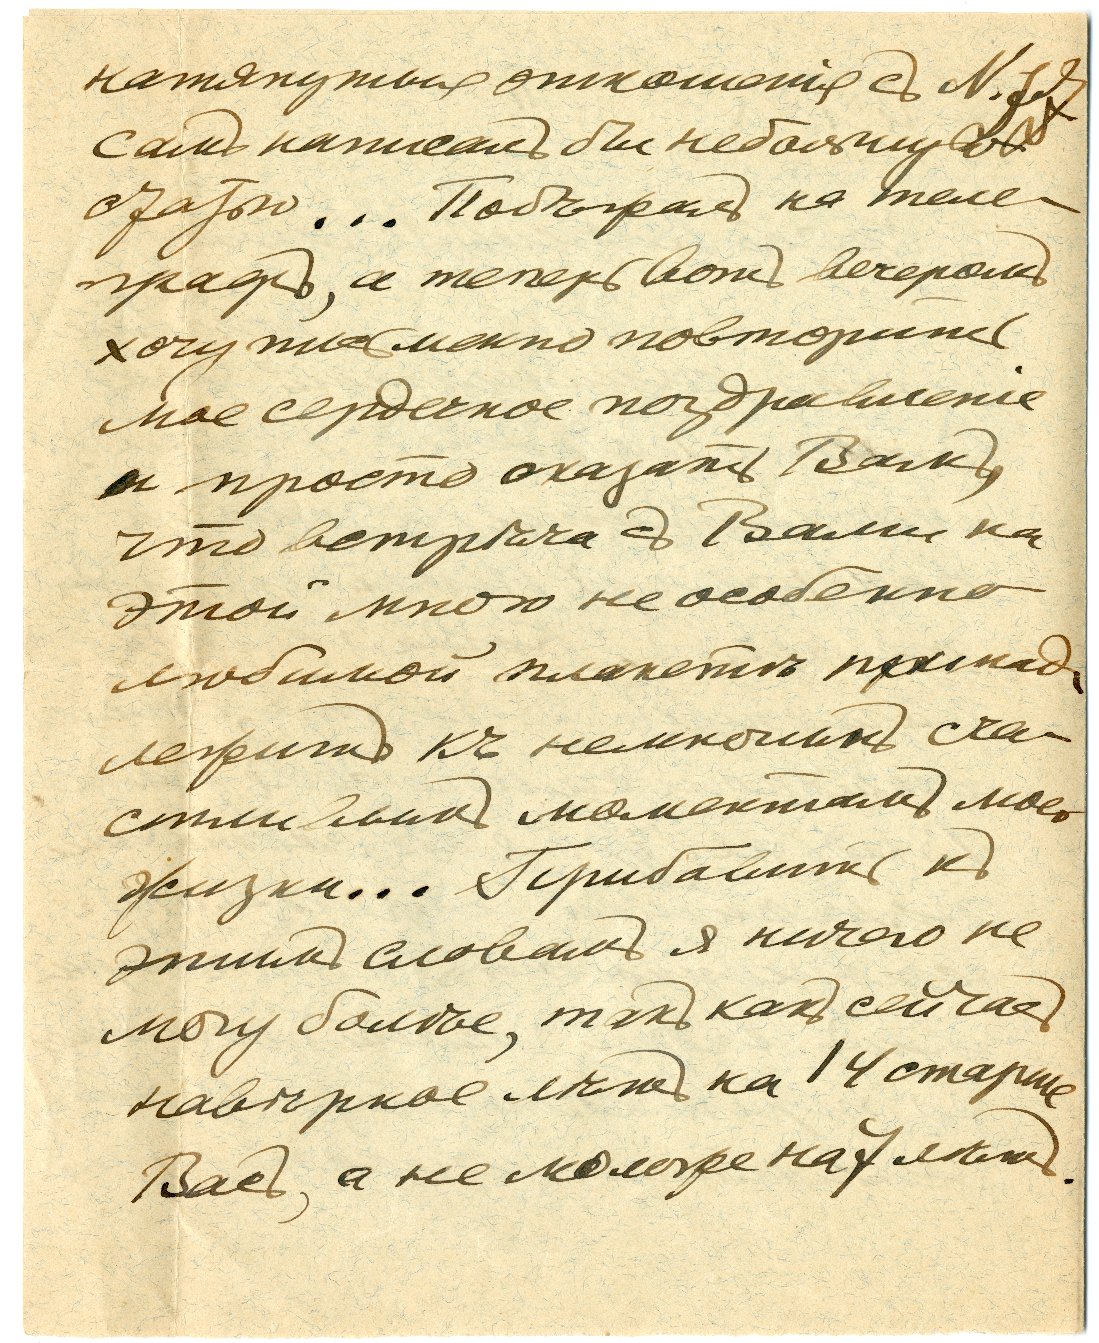 натянутыя отношенія съ N.
самъ написалъ бы небольшую
статью... Побѣжалъ на теле-
графъ, а теперь вотъ вечеромъ
хочу письменно повторить
мое сердечное поздравленіе
и просто сказать Вамъ,
что встрѣча съ Вами на
этой мною не особенно
любимой планетѣ принад-
лежитъ къ немногимъ сча-
стливымъ моментамъ моей
жизни... Прибавить къ
этимъ словамъ я ничего не
могу болѣе, такъ какъ сейчасъ
навѣрное лѣтъ на 14 старше
Васъ, а не моложе на 7 лѣтъ.